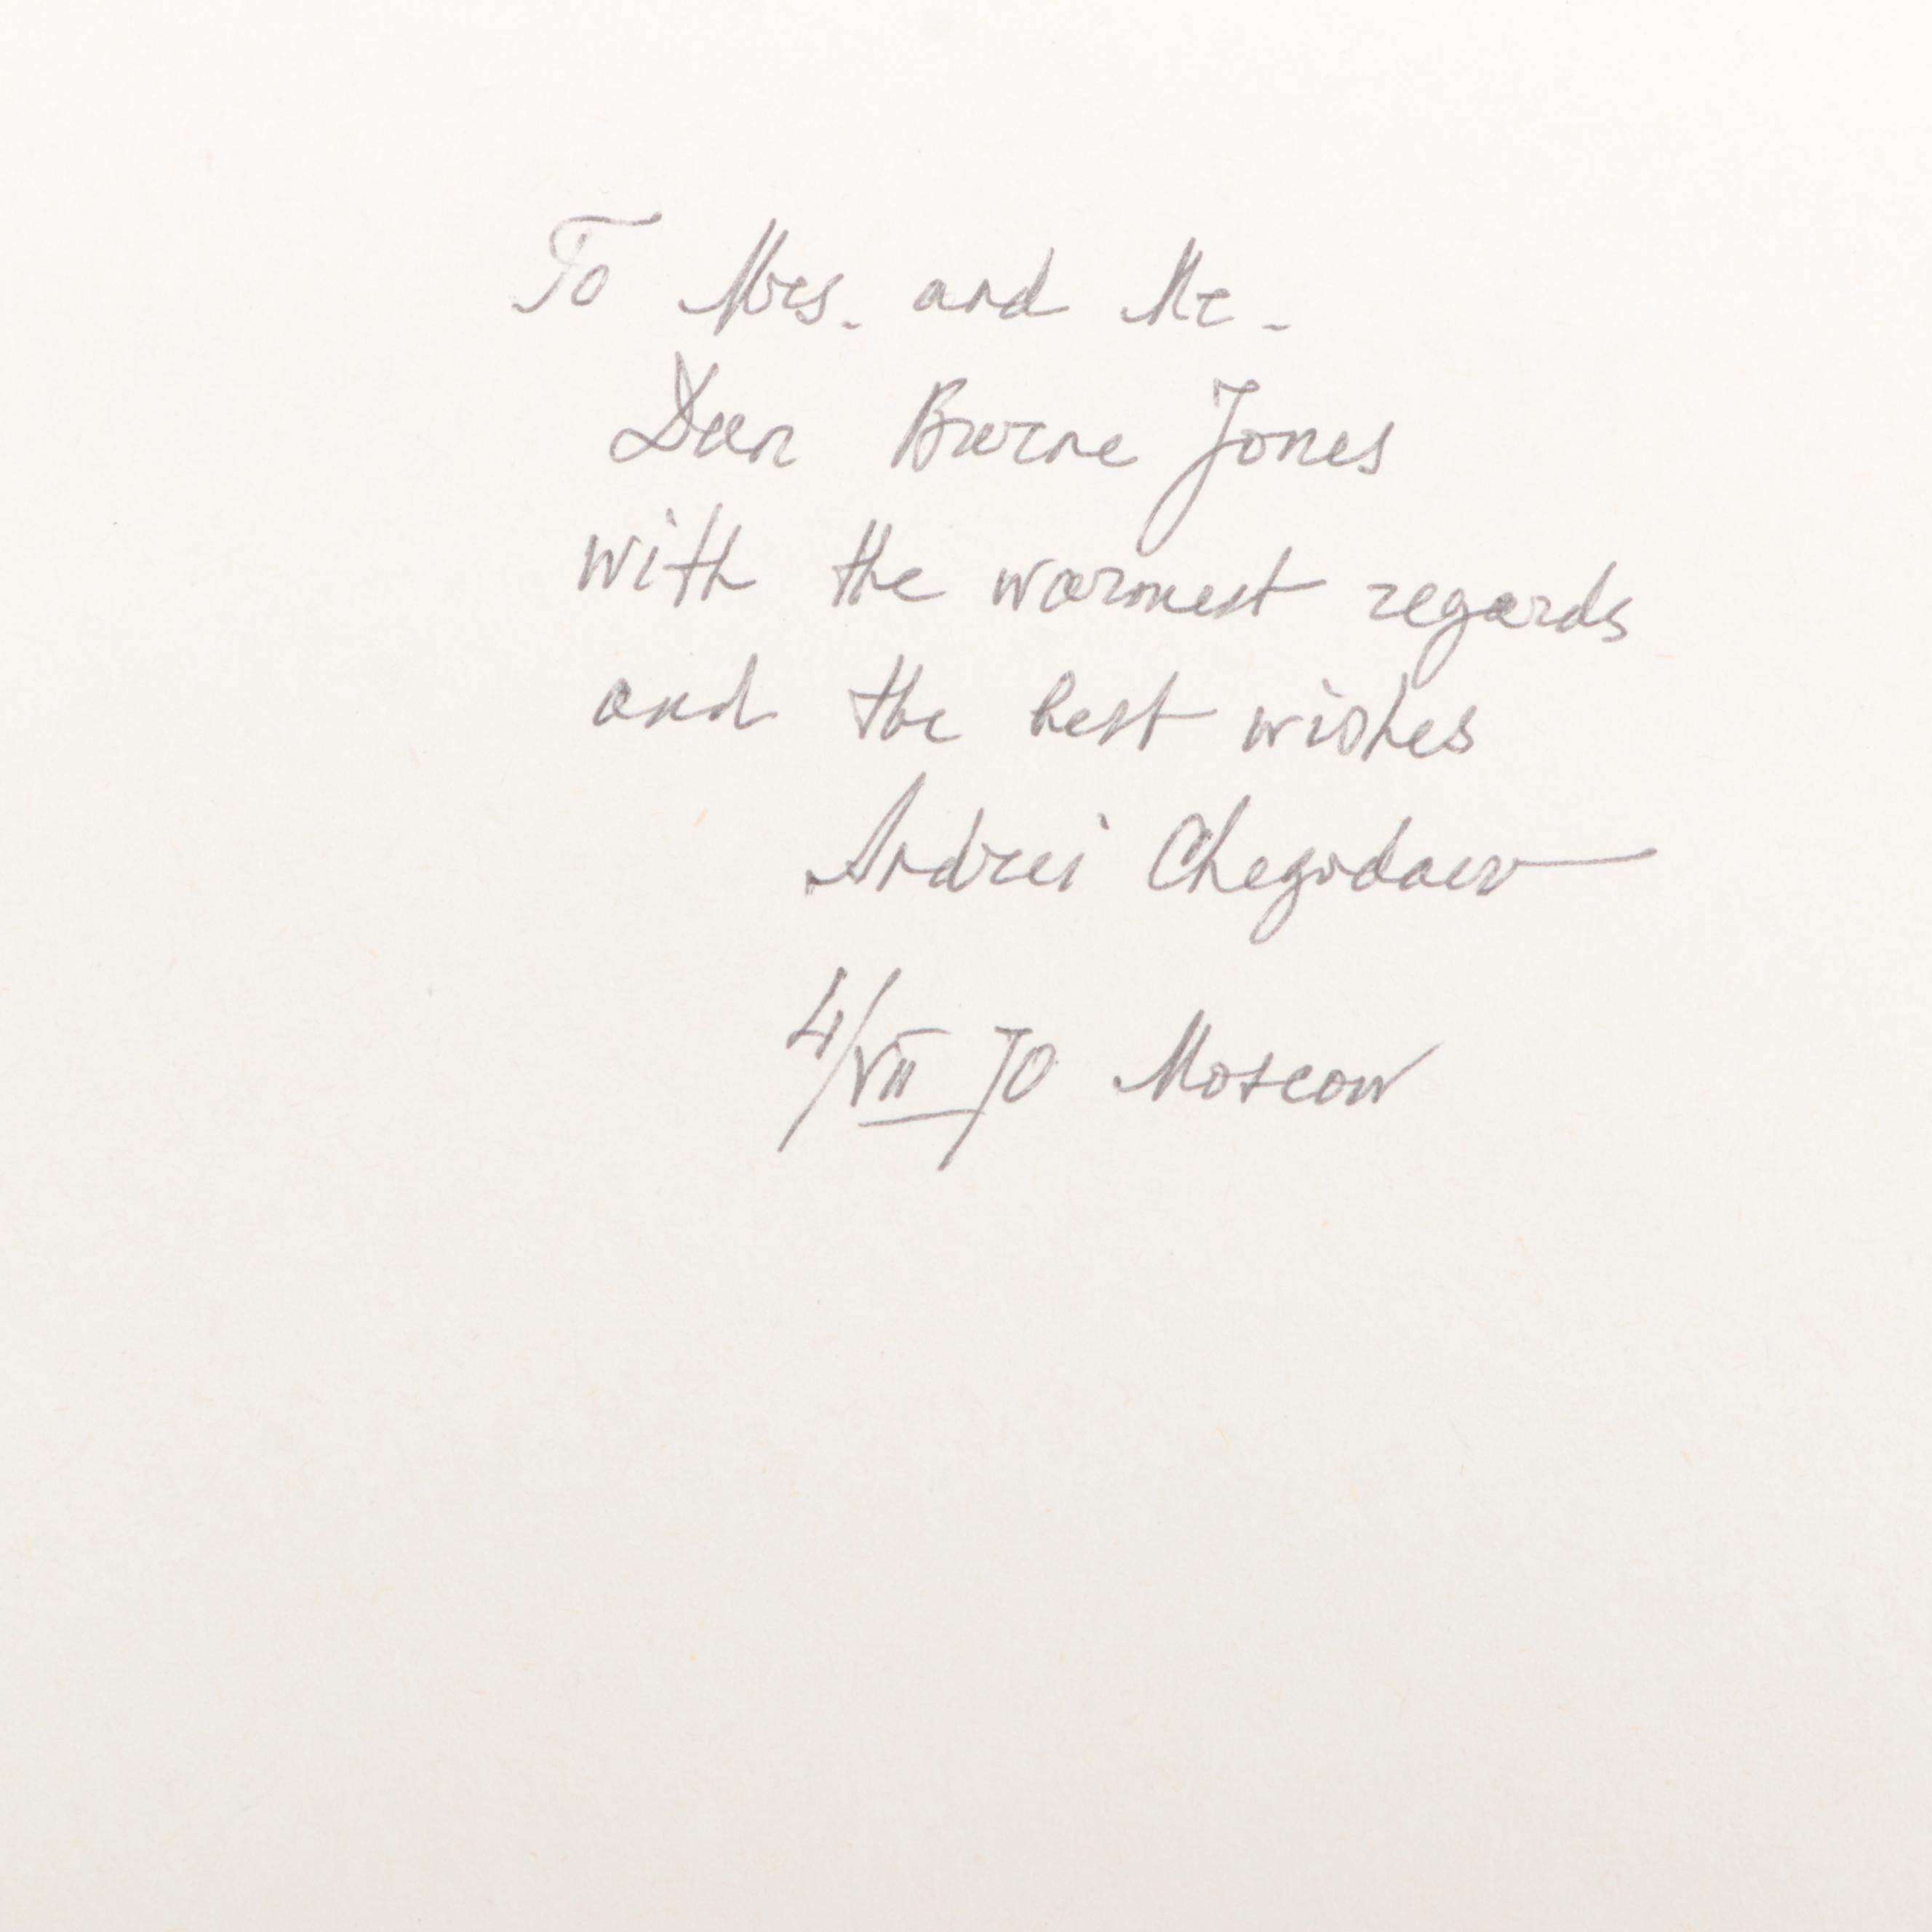 To Mrs. and Mr.
Dan Burne Jones
with the warmest regards
and the best wishes
Andrei Chegodaev
4/VII 70 Moscow